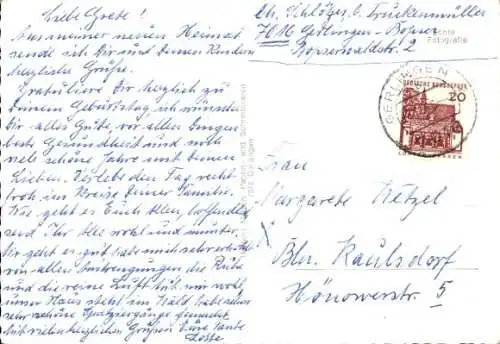 Liebe Grete!
Aus meiner neuen Heimat
sende ich Dir und Deinen Kindern
herzliche Grüße.
Gratuliere Dir herzlich zu
Deinem Geburtstag, ich wünsche
Dir alles Gute, vor allen Dingen
beste Gesundheit und noch
viele schöne Jahre mit Deinen
Lieben. Verlebe den Tag recht
froh im Kreise Deiner Familie.
Wie geht es Euch Allen, hoffentlich
seid Ihr Alle wohl und munter.
Mir geht es gut, habe mich sehr erholt
von allen Anstrengungen die Ruhe
und die reine Luft tut mir wohl,
unser Haus steht im Wald, habe schon
sehr schöne Spaziergänge gemacht.
Mit vielen herzlichen Grüßen Eure Tante
Lotte
Ch. Schlöger, b. Truckenmüller
7016 Gerlingen-Bopser
Bopserwaldstr. 2
Echte
Fotografie
GERLINGEN
DEUTSCHE BUNDESPOST
20
LORSCH HESSEN
Frau
Margarete Netzel
Bln. Kaulsdorf
Hönowerstr. 5